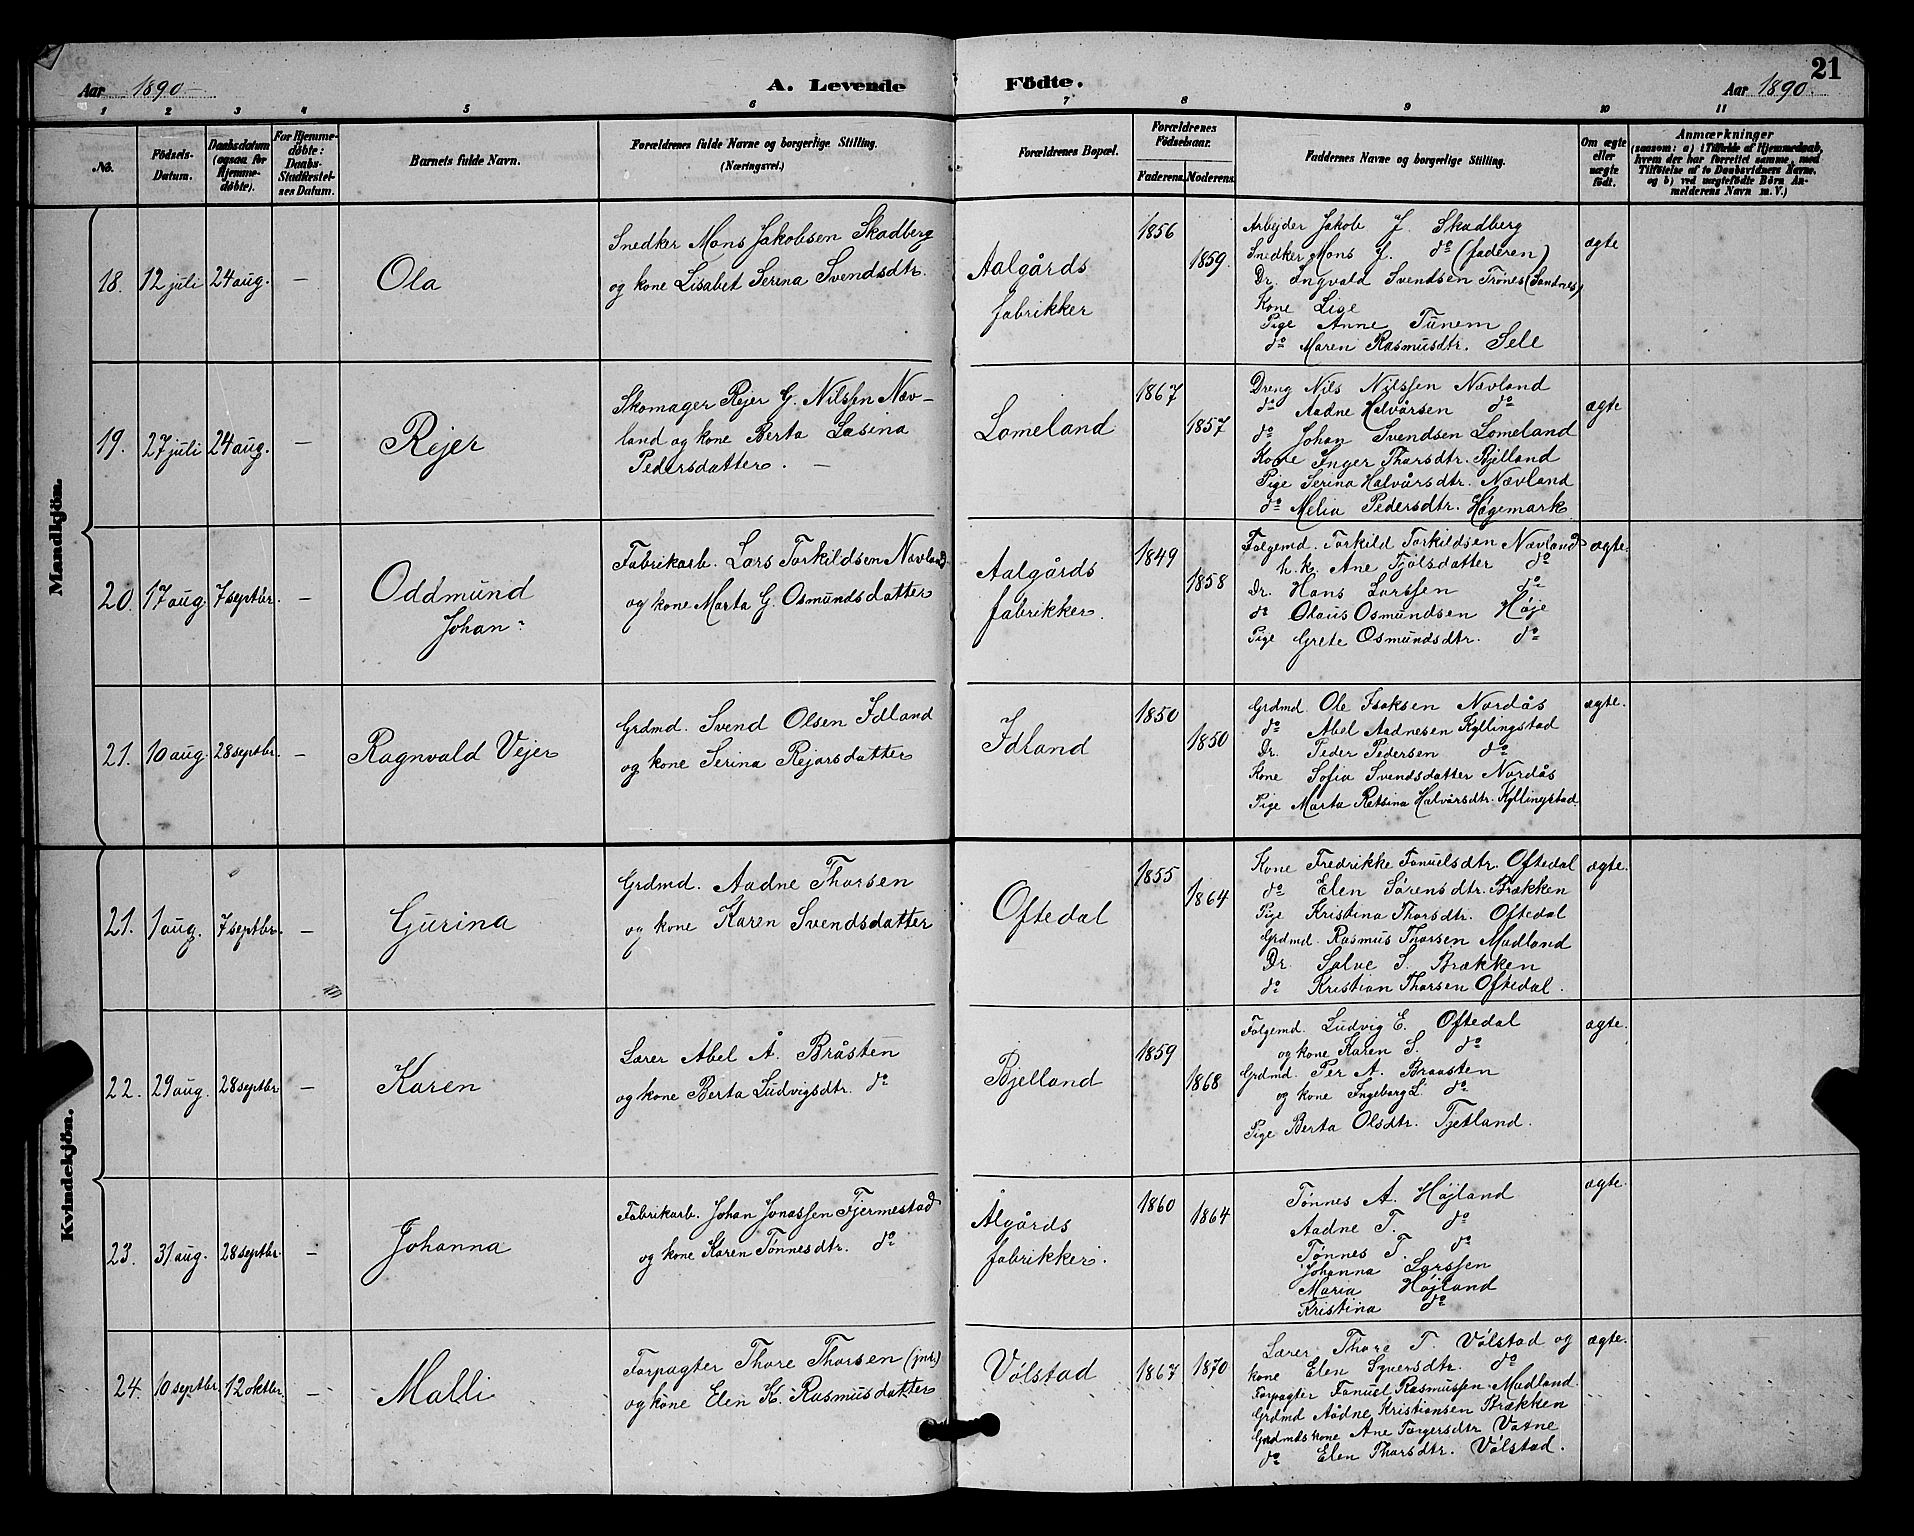 Aar 1890 A. Levende Födte. Aar 1890. 21
1 2 3 4 5 6 7 8 9 10 11
No.
Födsels-Datum.
Daabsdatum (ogsaa for Hjemmedöbte).
For Hjemmedöbte: Daabs-Stadfæstelses Datum.
Barnets fulde Navn.
Forældrenes fulde Navne og borgerlige Stilling. (Næringsvei.)
Forældrenes Bopæl.
Forældrenes Födselsaar.
Faderens. Moderens.
Faddernes Navne og borgerlige Stilling.
Om ægte eller uægte födt.
Anmærkninger
(saasom: a) i Tilfælde af Hjemmedaab, hvem der har forrettet samme, med Tilföielse af to Daabsvidners Navne, og b) ved uægtefödte Börn Anmelderens Navn m. V.)
Mandkjön.
18. 12 juli 24 aug. — Ola
Snedker Mons Jakobsen Skadberg
og kone Lisabet Serina Svendsdtr.
Aalgårds
fabrikker
1856 1859.
Arbejder Jakob J. Skadberg
Snedker Mons J. do (faderen)
Dr. Ingvald Svendsen Trones (Sandnes)
Kone Lise
Pige Anne Tunem
do Maren Rasmusdtr. Sele
ægte
19. 27 juli 24 aug. — Rejer
Skomager Rejer G. Nilssen Næv-
land og kone Berta Lasina
Pedersdatter. —
Lomeland
1867 1857
Dreng Nils Nilssen Nævland
do Aadne Halvårsen do
do Johan Svendsen Lomeland
Kone Inger Thorsdtr. Bjelland
Pige Serina Halvårsdtr. Nævland
do Melia Pedersdtr. Høgemark
ægte
20. 17 aug. 7 septbr. — Oddmund
Johan
Fabrikarb. Lars Torkildsen Nævland
og kone Marta G. Osmundsdatter
Aalgårds
fabrikker.
1849 1858
Folgemd. Torkild Torkildsen Nævland
h. k. Ane Tjølsdatter do
Dr. Hans Larssen do
do Olaus Osmundsen Høje
Pige Grete Osmundsdtr. do
ægte.
21. 10 aug. 28 septbr. — Ragnvald Vejer
Grdmd. Svend Olsen Idland
og kone Serina Rejarsdatter
Idland
1850 1850
Grdmd Ole Isaksen Nordås
do Abel Aadnesen Kyllingstad
Dr. Peder Pedersen do
Kone Sofia Svendsdatter Nordås
Pige Marta Retsina Halvårsdtr. Kyllingstad
ægte.
Kvindekjön.
21. 1 aug. 7 septbr. — Gurina
Grdmd. Aadne Thorsen
og kone Karen Svendsdatter
Oftedal
1855 1864
Kone Fredrikke Fanuelsdtr. Oftedal
do Elen Sørensdtr. Brækken
Pije Kristina Thorsdtr. Oftedal
Grdmd. Rasmus Thorsen Madland
Dr. Salve S. Brækken
do Kristian Thorsen Oftedal.
ægte.
22. 29 aug. 28 septbr. — Karen
Lærer Abel A. Bråsten
og kone Berta Ludvigsdtr. do
Bjelland
1859 1868
Folgemd. Ludvig E. Oftedal
og kone Karen S. do
Grdmd. Per A. Braasten
og kone Ingeborg L. do
Pige Berta Olsdtr. Tjetland.
ægte.
23. 31 aug. 28 septbr. — Johanna
Fabrikarb. Johan Jonassen Fjermestad
og kone Karen Tønnesdtr. do
Ålgårds
fabrikker.
1860 1864
Tønnes A. Højland
Aadne T. do
Tønnes T. do
Johanna Larssen
Maria Højland
Kristina do
ægte.
24. 10 septbr. 12 oktbr. — Malli
Forpagter Thore Thorsen (jnr.)
og kone Elen K. Rasmusdatter
Vølstad
1867 1870
Lærer Thore T. Vølstad og
kone Elen Syversdtr. do
Forpagter Fanuel Rasmussen Madland
Grdmd Aådne Kristiansen Brækken
Grdmds kone Ane Torgersdtr Vatne
do Elen Thorsdtr. Vølstad.
ægte.